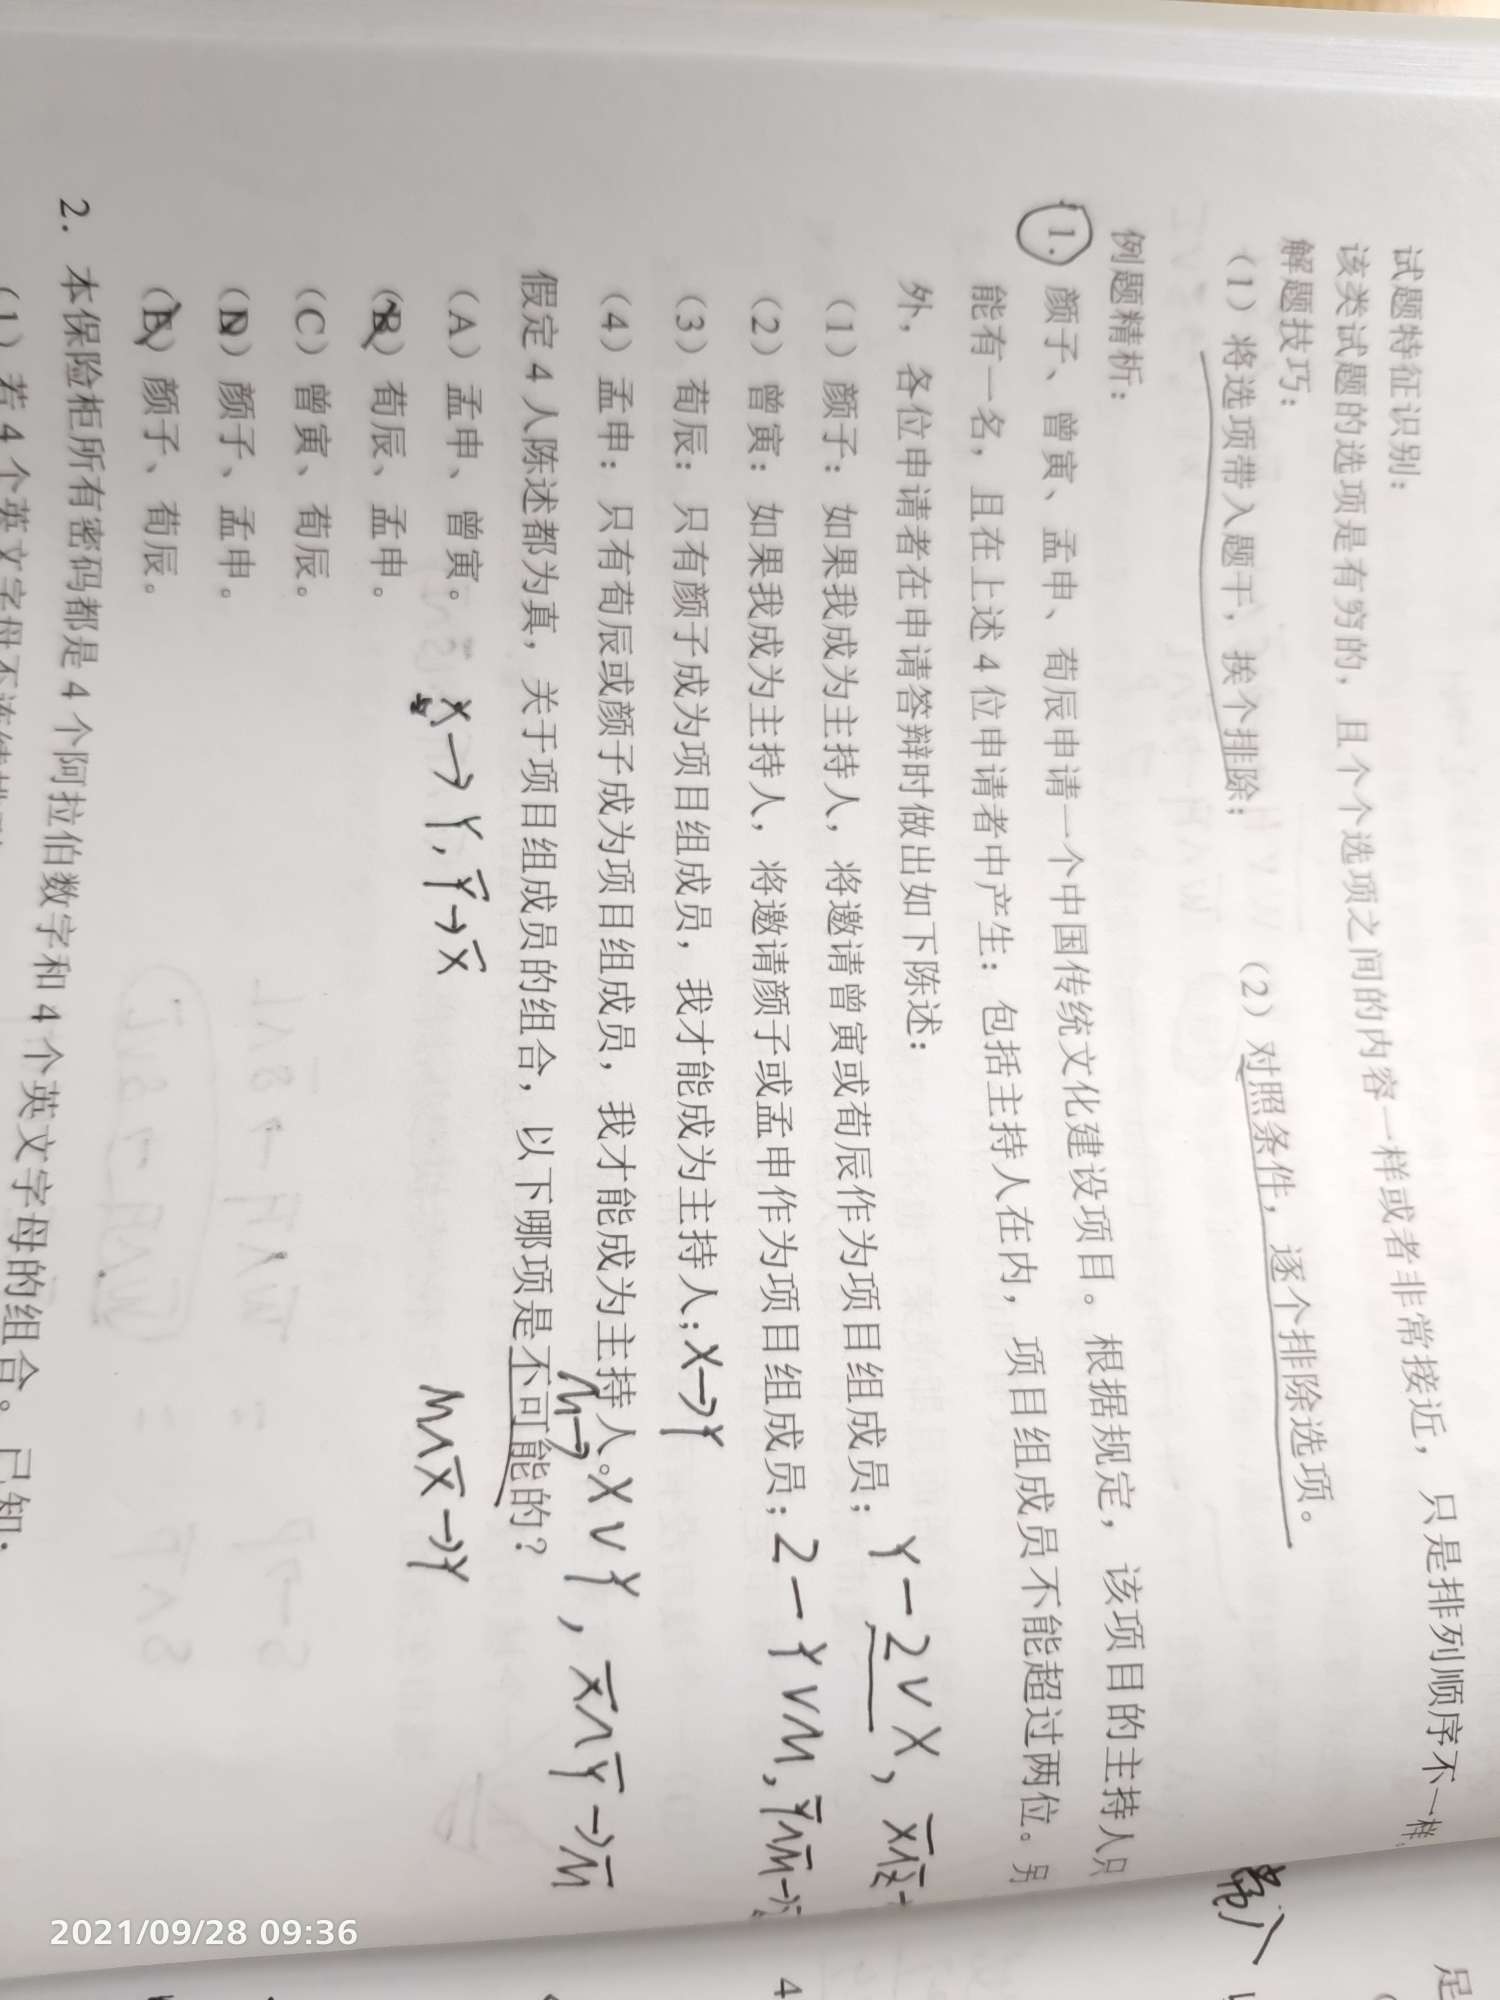 试题特征识别：
该类试题的选项是有穷的，且个个选项之间的内容一样或者非常接近，只是排列顺序不一样。
解题技巧：
（1）将选项带入题干，挨个排除；（2）对照条件，逐个排除选项。
例题精析：
1. 颜子、曾寅、孟申、荀辰申请一个中国传统文化建设项目。根据规定，该项目的主持人只
能有一名，且在上述 4 位申请者中产生；包括主持人在内，项目组成员不能超过两位。另
外，各位申请者在申请答辩时做出如下陈述：
（1）颜子：如果我成为主持人，将邀请曾寅或荀辰作为项目组成员； Y-2∨X，
（2）曾寅：如果我成为主持人，将邀请颜子或孟申作为项目组成员； 2-Y∨M，
（3）荀辰：只有颜子成为项目组成员，我才能成为主持人； X→Y
（4）孟申：只有荀辰或颜子成为项目组成员，我才能成为主持人。
M→X∨Y，X̅∧Y̅→M̅
假定 4 人陈述都为真，关于项目组成员的组合，以下哪项是不可能的？
（A）孟申、曾寅。
X→Y，Y̅→X̅
M∧X̅→Y
（B）荀辰、孟申。
（C）曾寅、荀辰。
（D）颜子、孟申。
（E）颜子、荀辰。
2. 本保险柜所有密码都是 4 个阿拉伯数字和 4 个英文字母的组合。已知：
（1）若 4 个英文字母不连续